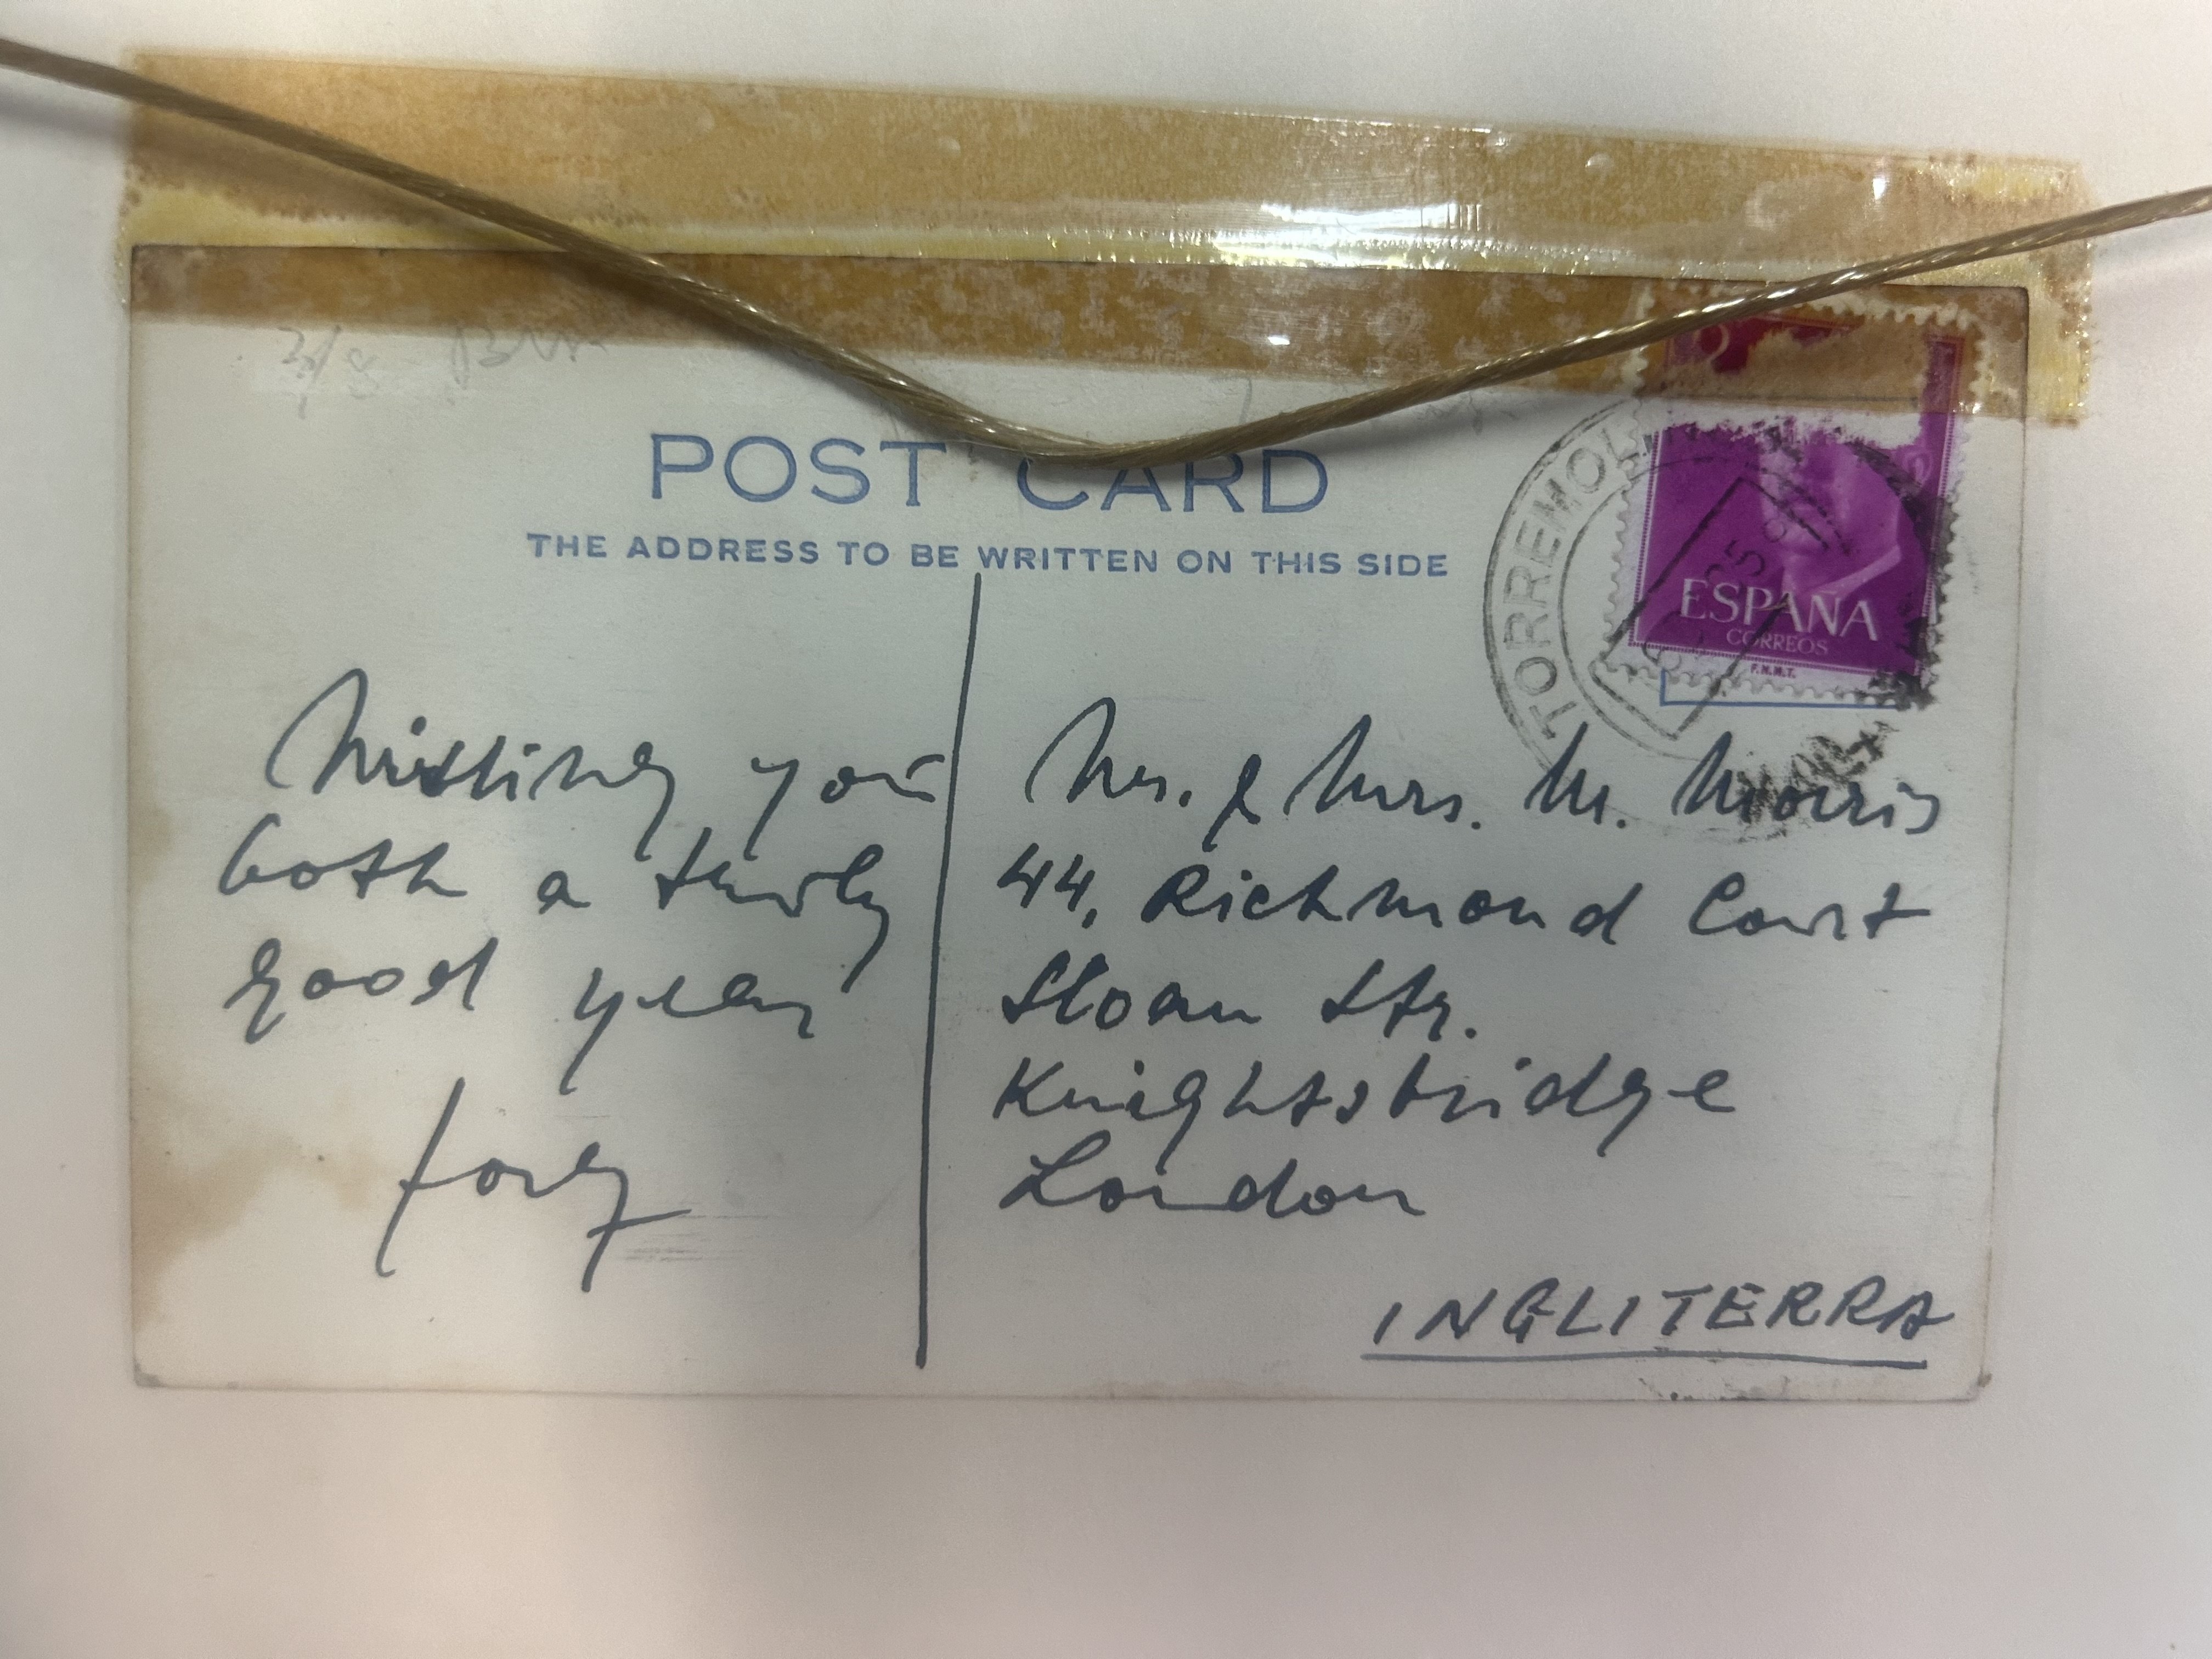 POST CARD
THE ADDRESS TO BE WRITTEN ON THIS SIDE
TORREMOLIN
ESPAÑA
CORREOS
F.N.M.T.
Wishing you
both a truly
good year
Mr. & Mrs. M. Morris
44, Richmond Court
Sloan Str.
Knightsbridge
London
INGLITERRA